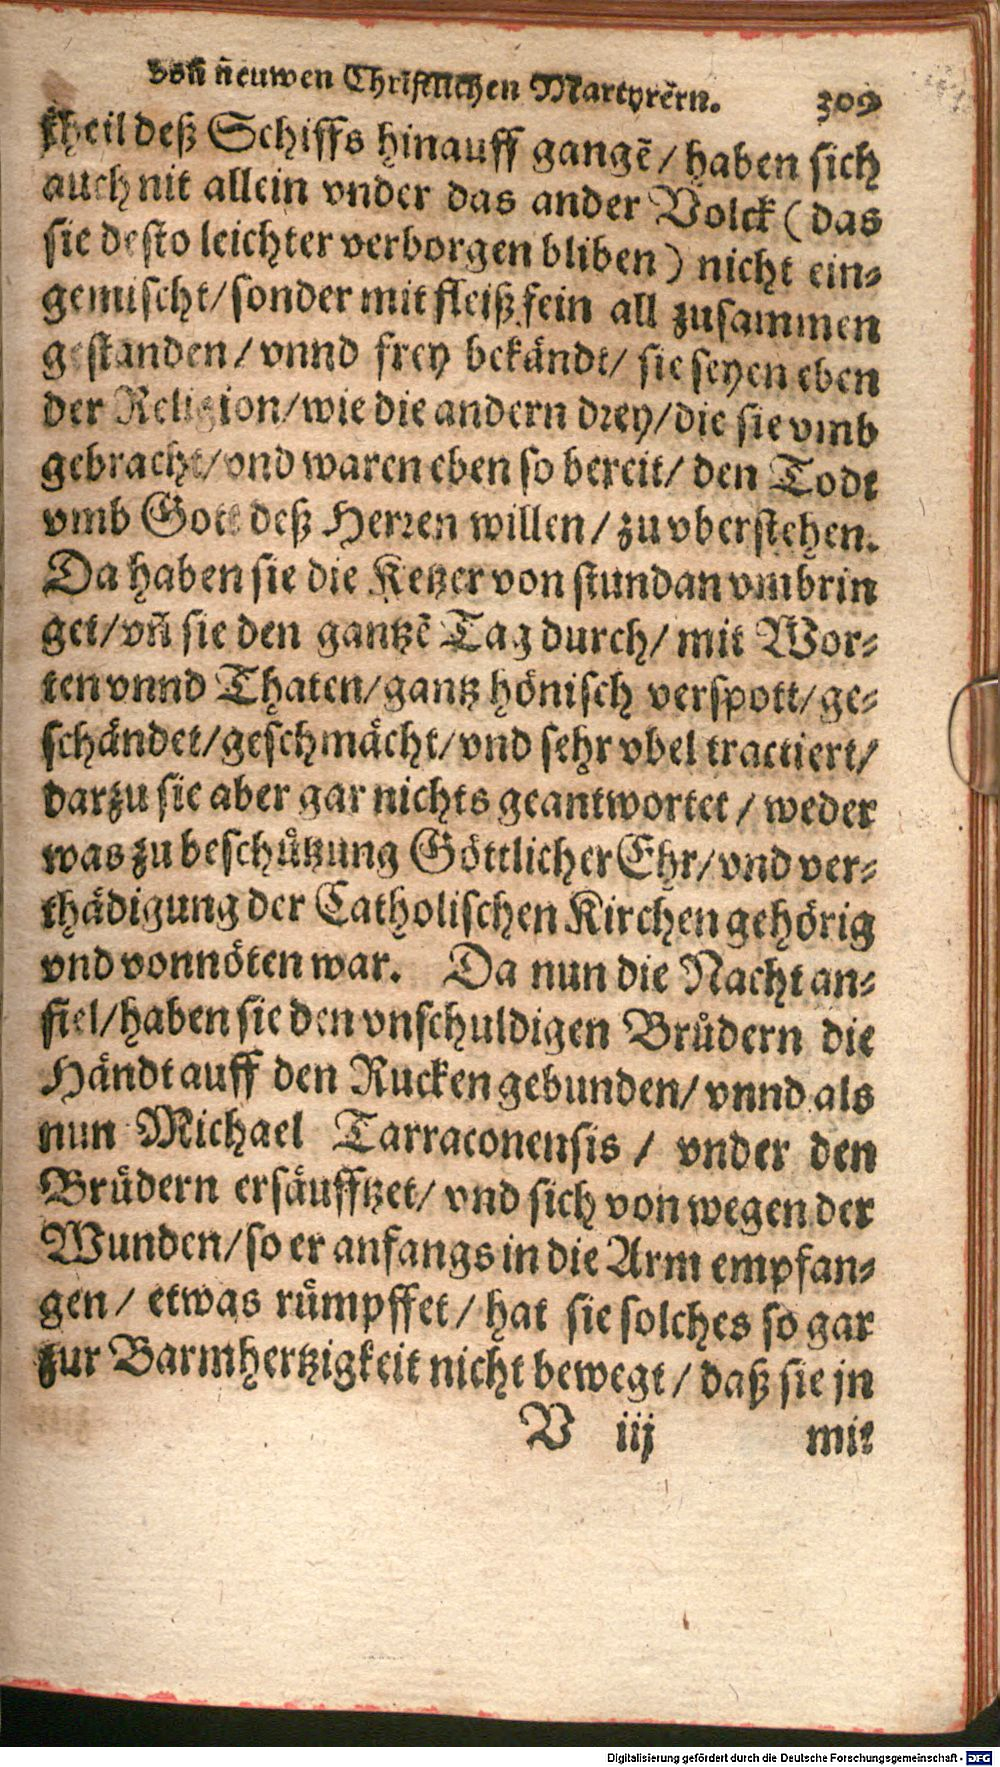 von neuwen Christlichen Martyrern. 309
theil deß Schiffs hinauff gangē / haben sich
auch nit allein vnder das ander Volck (das
sie desto leichter verborgen bliben) nicht ein-
gemischt/ sonder mit fleiß fein all zusammen
gestanden / vnnd frey bekändt/ sie seyen eben
der Religion/wie die andern drey/die sie vmb
gebracht/vnd waren eben so bereit/ den Todt
vmb Gott deß Herren willen / zu vberstehen.
Da haben sie die Ketzer von stundan vmbrin
get/vn̄ sie den gantzē Tag durch/ mit Wor-
ten vnnd Thaten/gantz hönisch verspott/ge-
schändet/geschmächt/vnd sehr vbel tractiert/
darzu sie aber gar nichts geantwortet / weder
was zu beschützung Göttlicher Ehr/vnd ver-
thädigung der Catholischen Kirchen gehörig
vnd vonnöten war. Da nun die Nacht an-
fiel/haben sie den vnschuldigen Brüdern die
Händt auff den Rucken gebunden/ vnnd als
nun Michael Tarraconensis / vnder den
Brüdern ersäufftzet/ vnd sich von wegen der
Wunden/so er anfangs in die Arm empfan-
gen / etwas rümpffet / hat sie solches so gar
zur Barmhertzigkeit nicht bewegt / daß sie jn
V iij mit
Digitalisierung gefördert durch die Deutsche Forschungsgemeinschaft - DFG